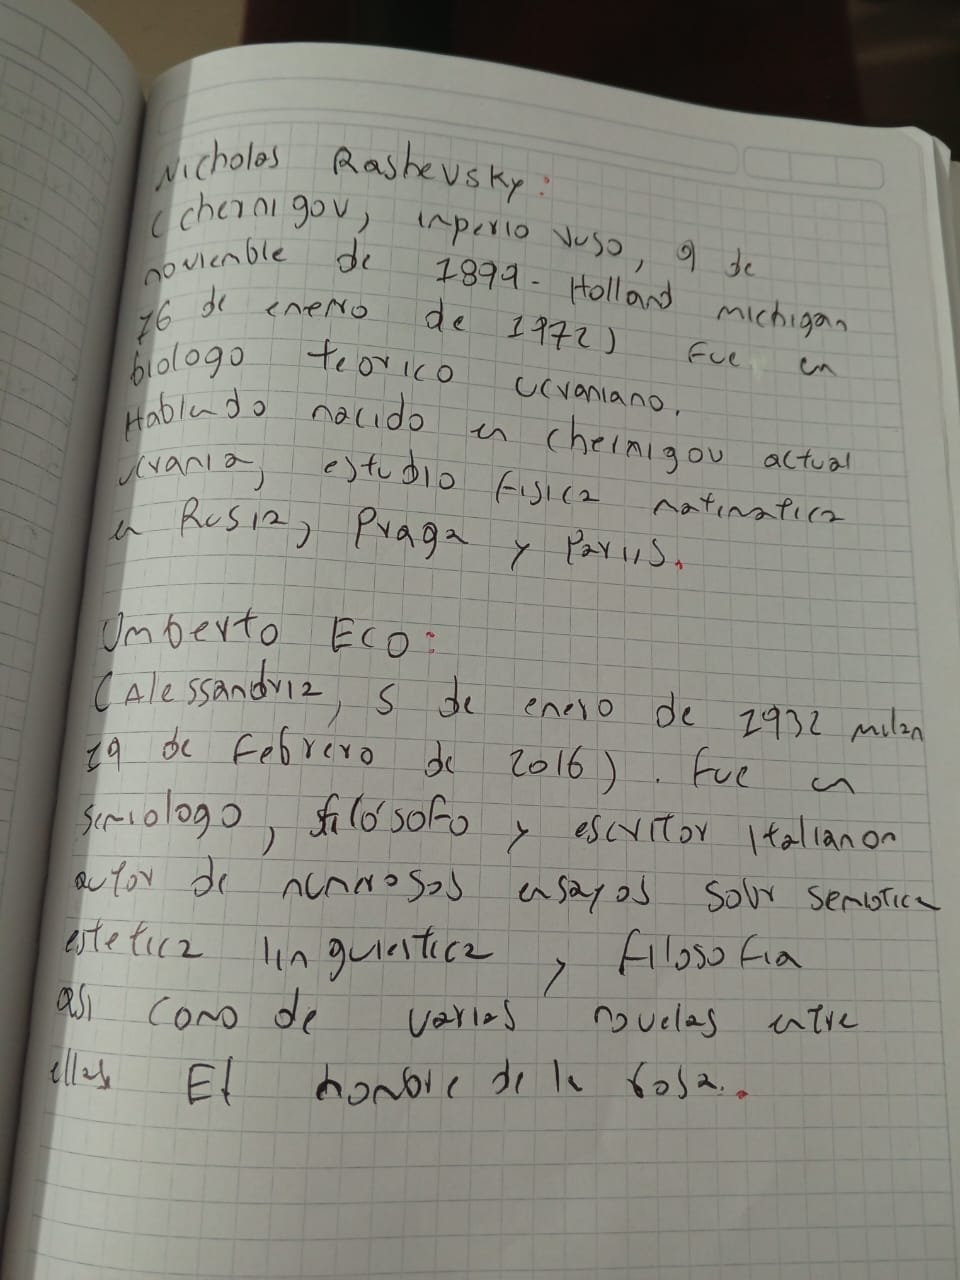 Nicholas Rashevsky:
(chernigov, inperio ruso, 9 de
novienble de 1899 - Holland michigan
16 de enero de 1972) Fue en
biologo teorico ucraniano.
Hablendo nacido en chernigov actual
ucrania, estudio fisica natinatica
en Rusia, Praga y Pariis.
Umberto Eco:
(Alessandria, 5 de enero de 1932 milan
19 de Febrero de 2016). Fue en
semiologo, filósofo y escritor italianon
actor de nunnrosos ensayos sobr semiotica
estetica linguiestica y filosofia
asi cono de varias novelas entre
ellas El honbre de la rosa.